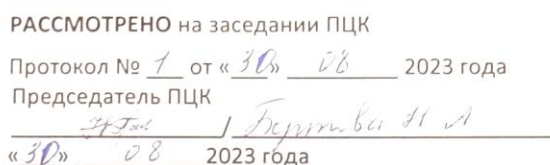 РАССМОТРЕНО на заседании ПЦК
Протокол № 1 от «30» 08 2023 года
Председатель ПЦК
/ Н Л
«30» 08 2023 года